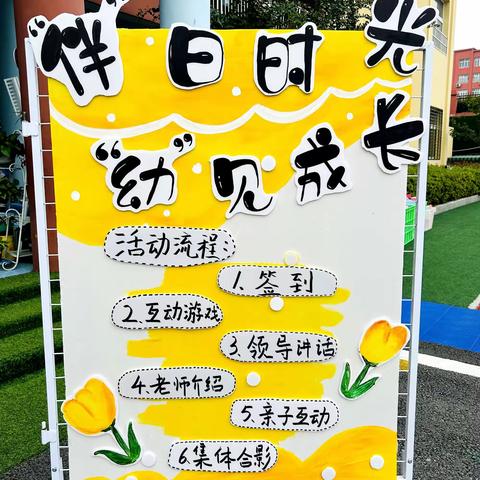 “伴”日时光
“幼”见成长
活动流程:
1.签到
2.互动游戏
3.领导讲话
4.老师介绍
5.亲子互动
6.集体合影